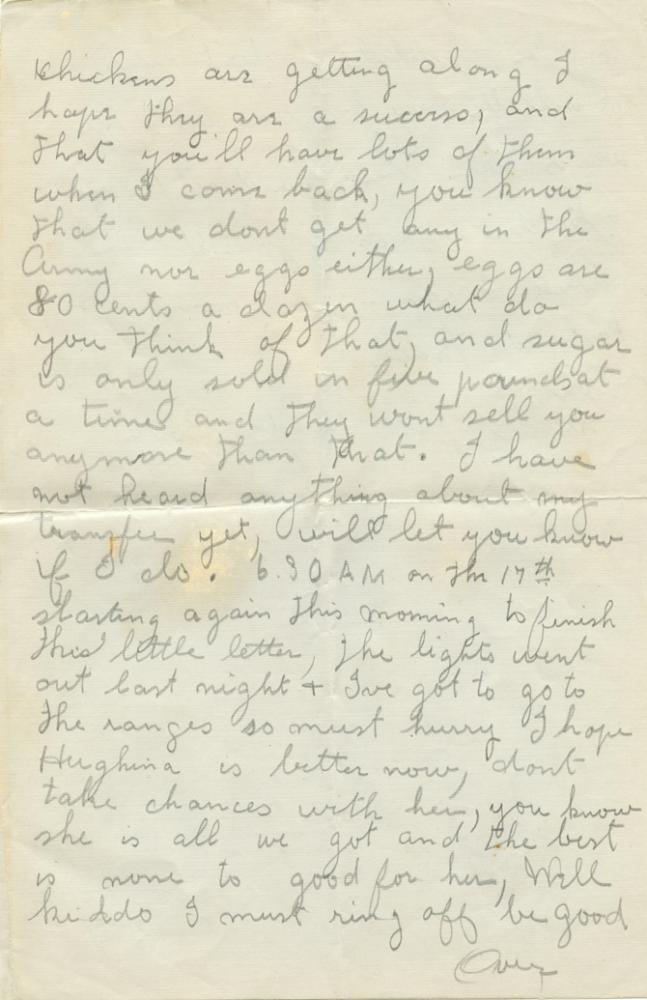 chickens are getting along I
hope they are a success, and
that you'll have lots of them
when I come back, you know
that we dont get any in the
Army nor eggs either, eggs are
80 cents a dozen what do
you think of that, and sugar
is only sold in five pounds at
a time and they wont sell you
anymore than that. I have
not heard anything about my
transfer yet, will let you know
if I do. 6.30 AM on the 17th
starting again this morning to finish
this little letter, the lights went
out last night + I've got to go to
the ranges so must hurry I hope
Hughina is better now, dont
take chances with her, you know
she is all we got and the best
is none to good for her, Well
kiddo I must ring off be good
Over